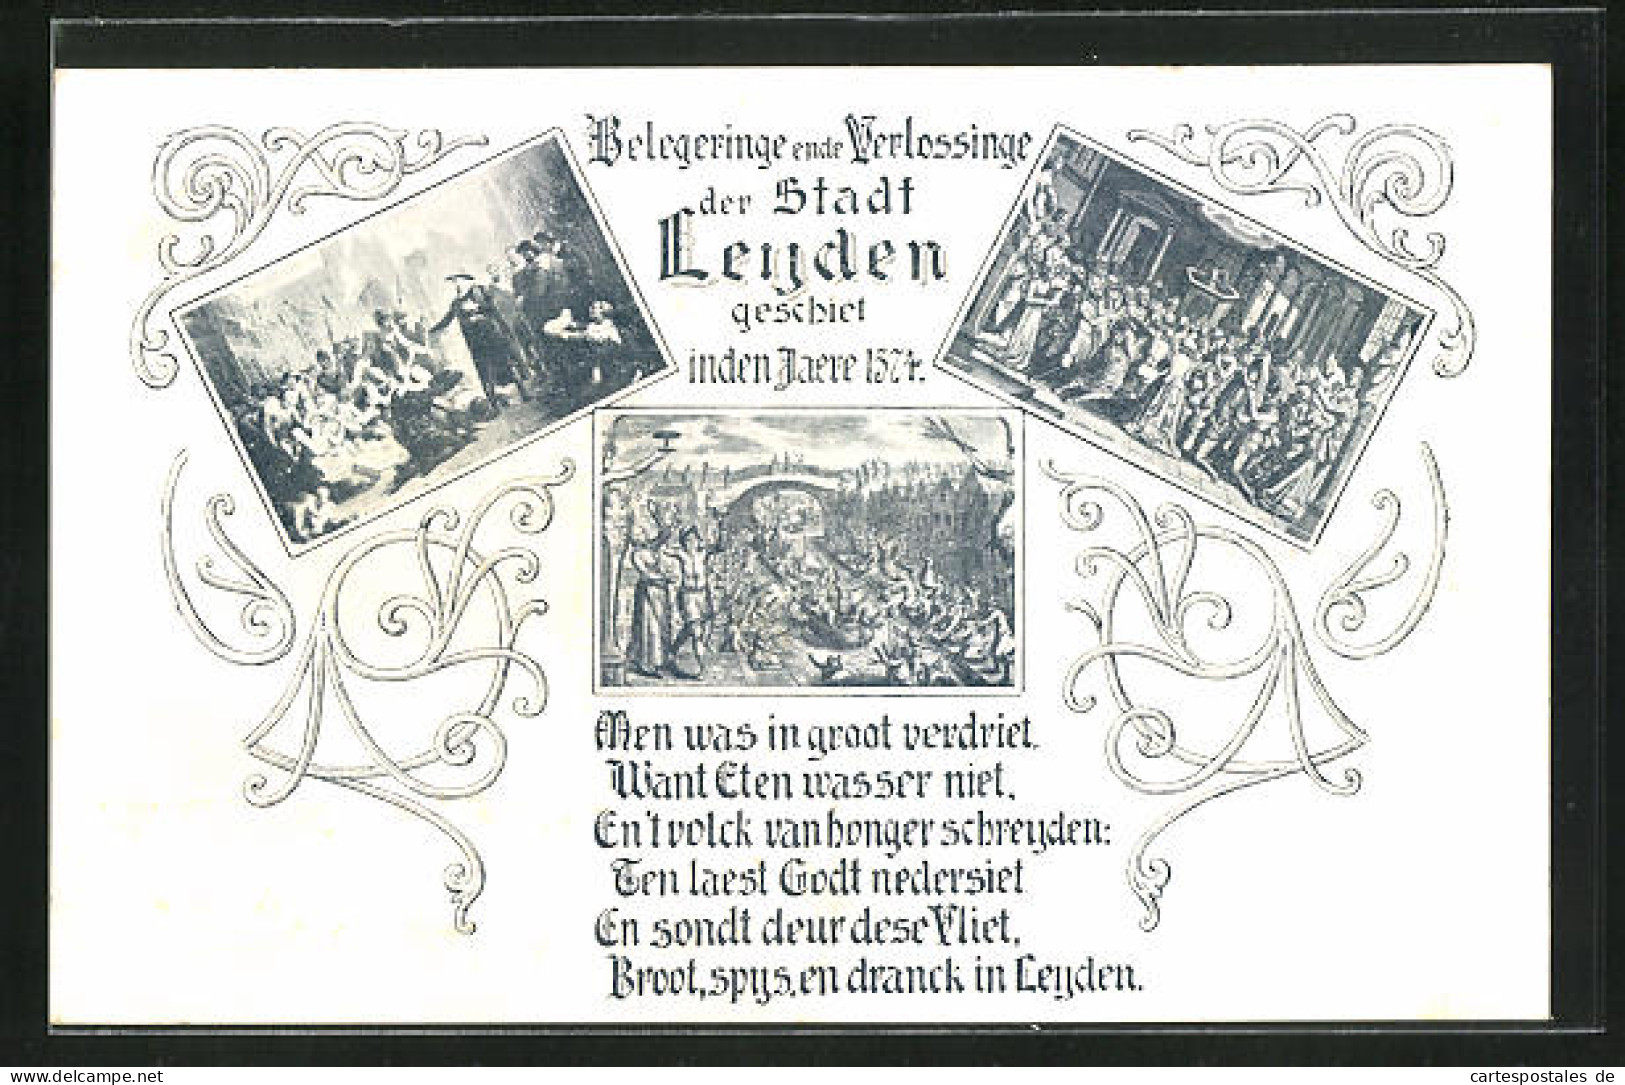 Belegeringe ende Verlossinge
der Stadt
Leyden
geschiet
in den Jaere 1574.
Men was in groot verdriet,
Want Eten was ser niet,
En 't volck van honger schreyden:
Ten laest Godt nedersiet
En sondt deur dese Vliet,
Broot, spys, en dranck in Leyden.
www.akpool.de
cartespostales de